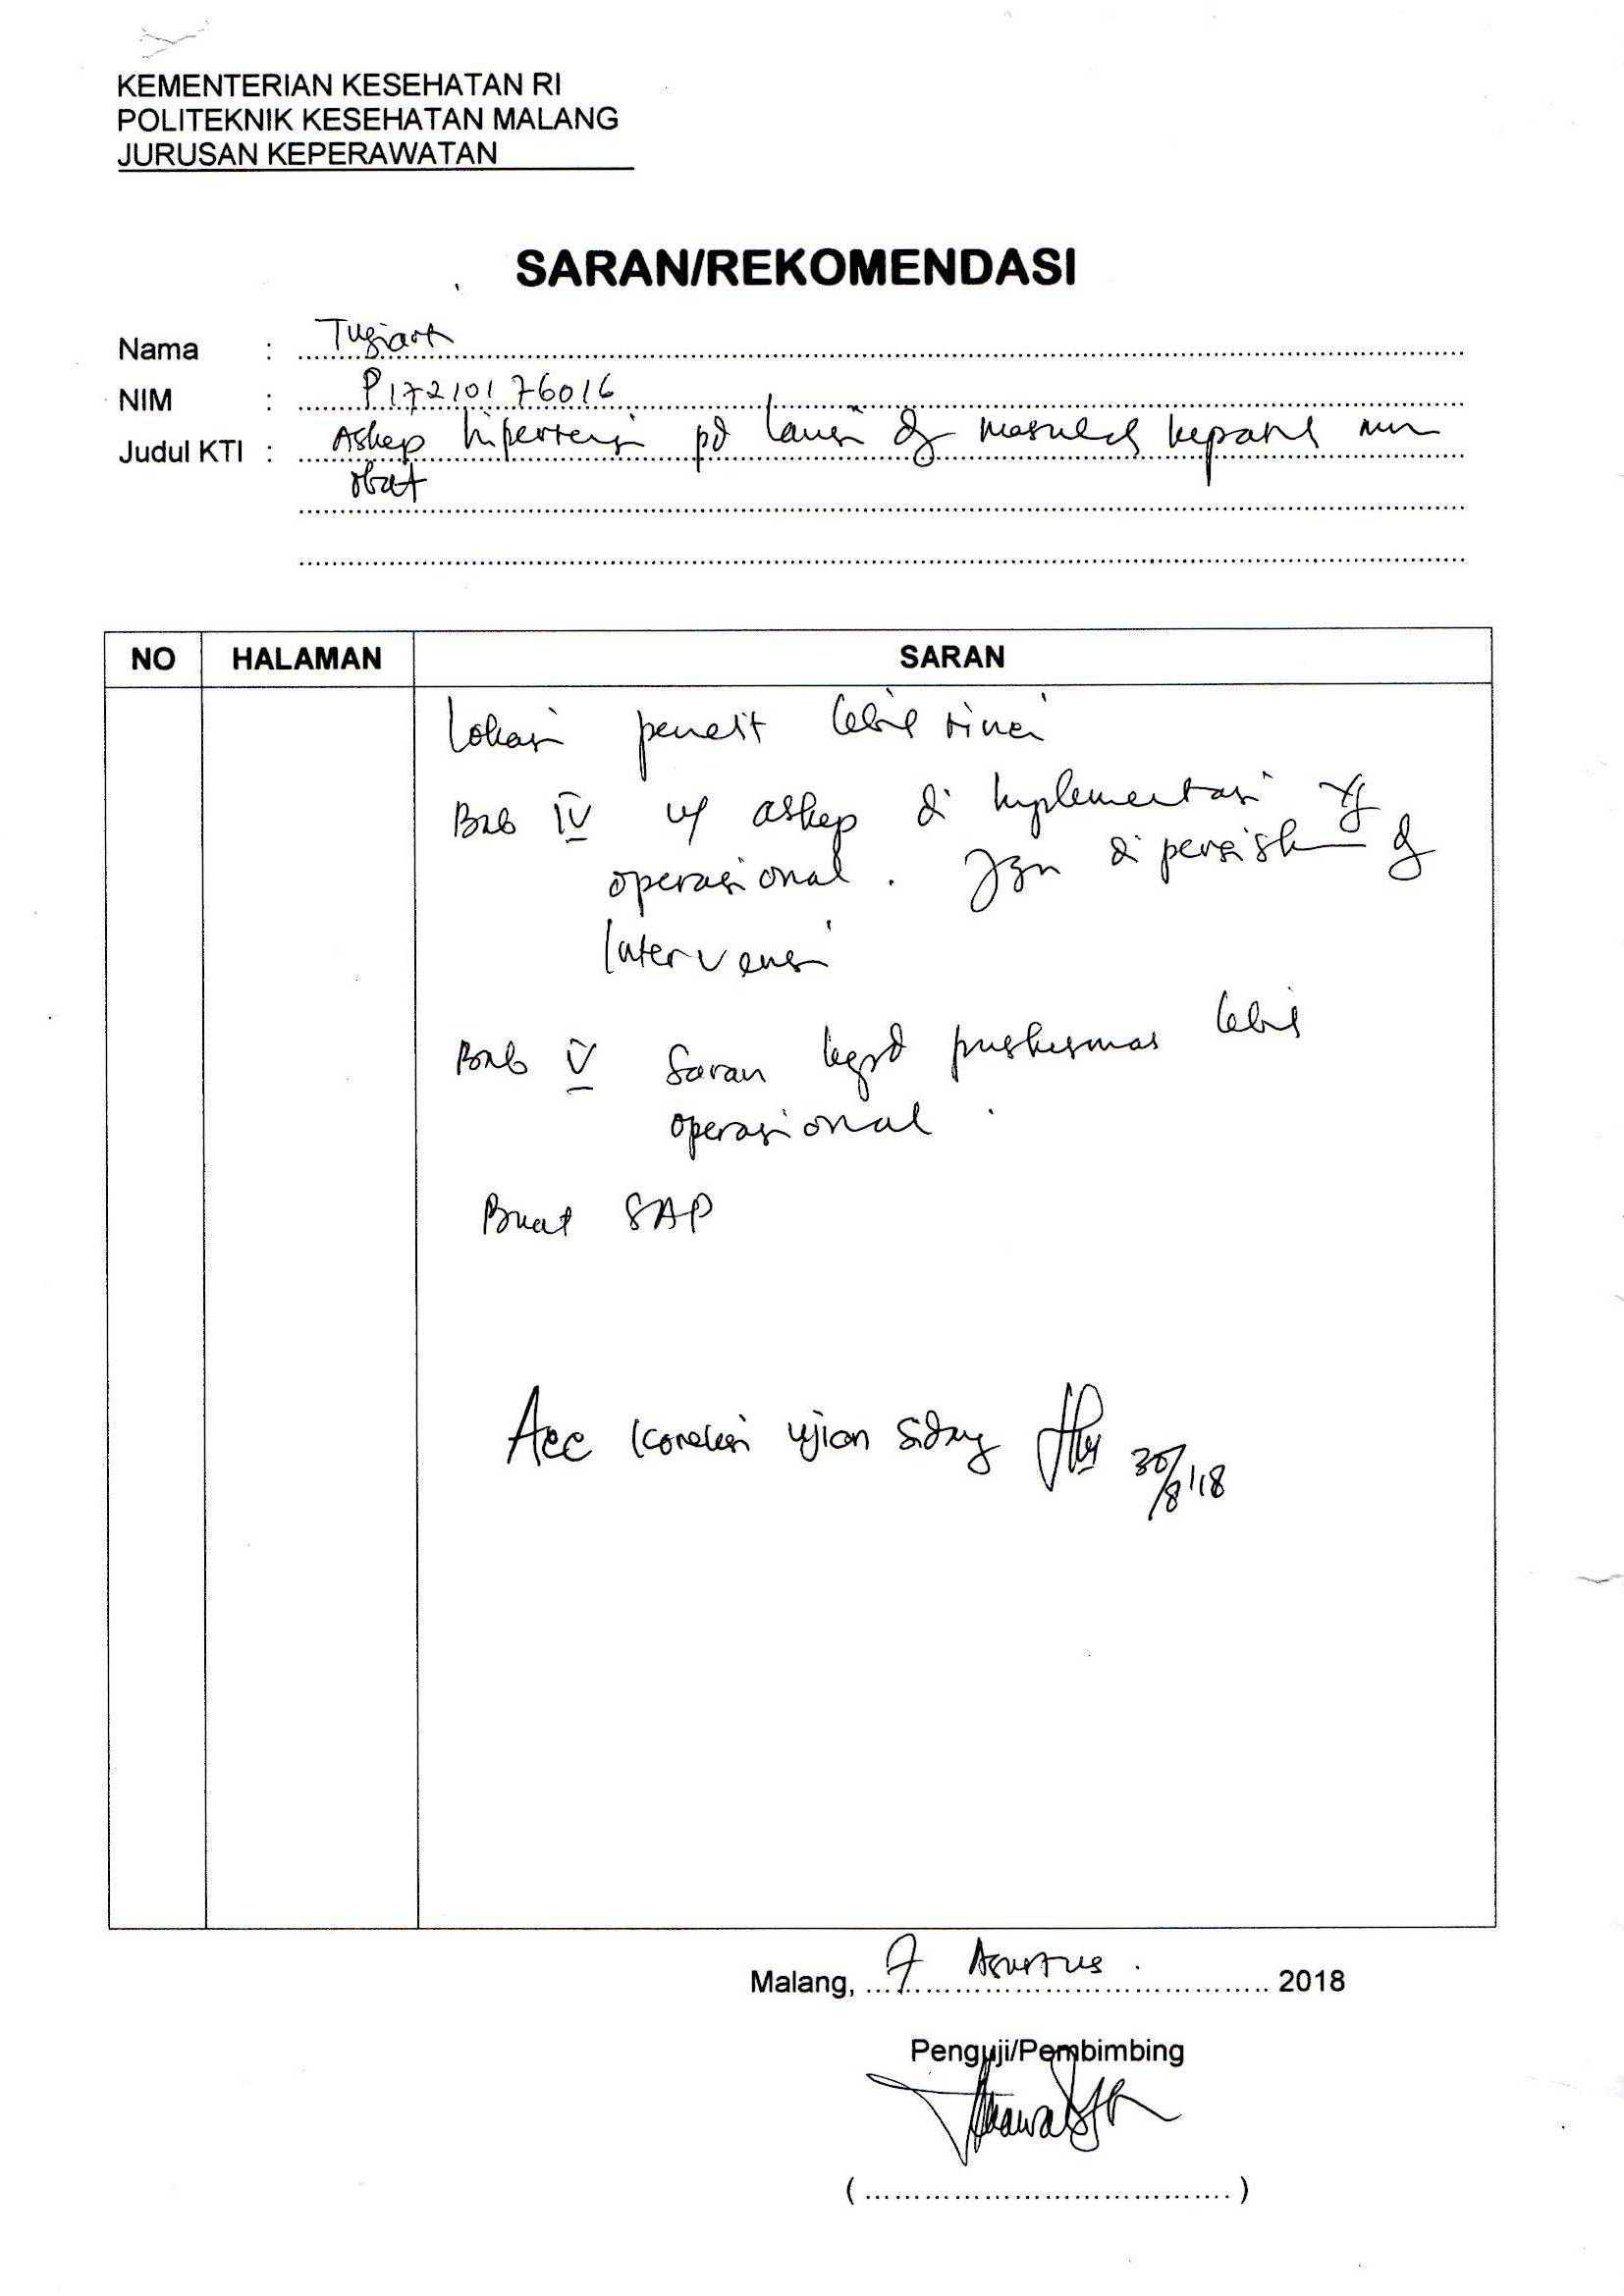 KEMENTERIAN KESEHATAN RI
POLITEKNIK KESEHATAN MALANG
JURUSAN KEPERAWATAN
SARAN/REKOMENDASI
Nama :
NIM : P17210176016
Judul KTI : Askep hipertensi pd lansia dg masalah
obat
NO HALAMAN SARAN
Lokasi penelit lebih rinci
Bab IV u/ askep di Implementasi yg
operasional. Jgn di
Intervensi
Bab V Saran kepd puskesmas lebih
operasional.
Buat SAP
Acc koreksi ujian sidang 30/8'18
Malang, 7 Agustus 2018
Penguji/Pembimbing
(.....................................)